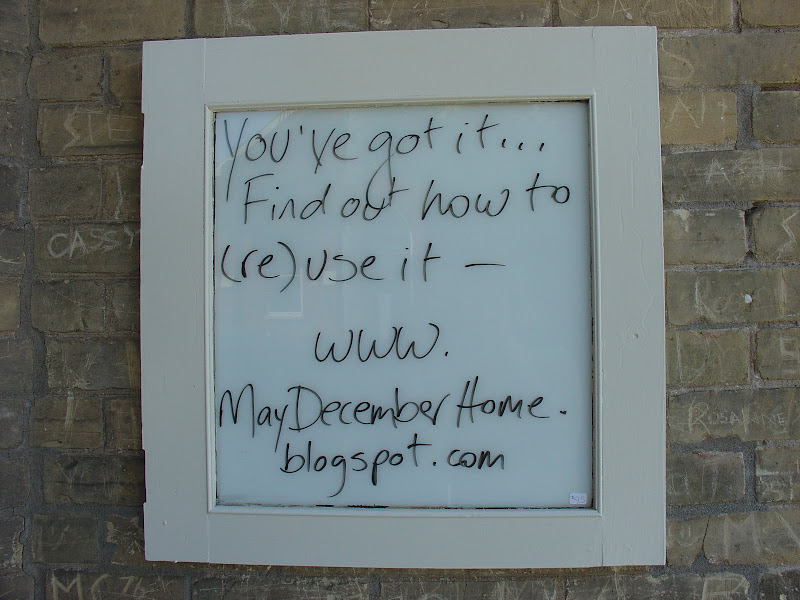 You've got it...
Find out how to
(re)use it —
www.
MayDecemberHome.
blogspot.com
$95
STE
CASSY
ASH
ROSALAINE
MC 76